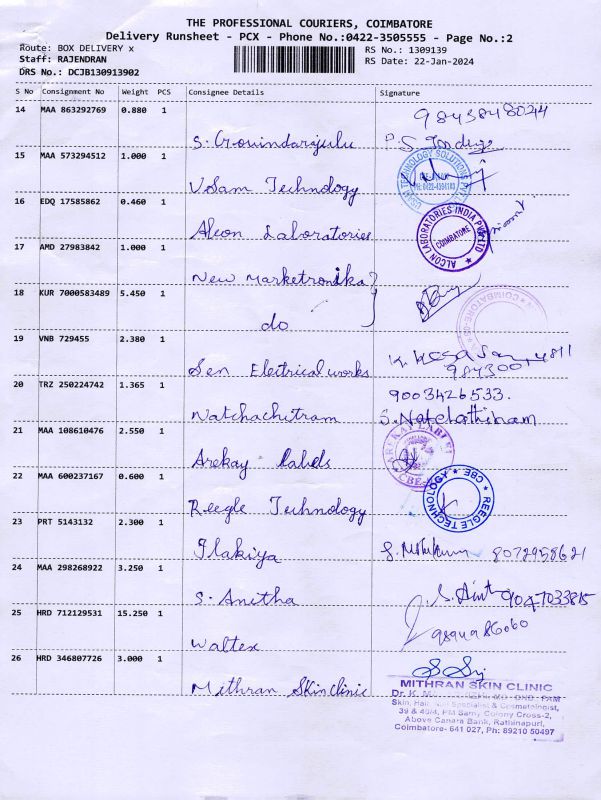 THE PROFESSIONAL COURIERS, COIMBATORE
Delivery Runsheet - PCX - Phone No.:0422-3505555 - Page No.:2
Route: BOX DELIVERY x RS No.: 1309139
Staff: RAJENDRAN RS Date: 22-Jan-2024
DRS No.: DCJB130913902
S No Consignment No Weight PCS Consignee Details Signature
14 MAA 863292769 0.880 1 9843848044
S. Govindarajulu
15 MAA 573294512 1.000 1
VSam Technology
16 EDQ 17585862 0.460 1
Alcon Laboratories
ALCON LABORATORIES INDIA PVT LTD
COIMBATORE
17 AMD 27983842 1.000 1
New Marketronika
18 KUR 7000583489 5.450 1
do
COIMBATORE
19 VNB 729455 2.380 1
Sen Electricalworks
20 TRZ 250224742 1.365 1 9003426533.
Natchachitram
21 MAA 108610476 2.550 1
Arekay Labels
CBE
22 MAA 600237167 0.600 1
Reegle Technology
REEGLE TECHNOLOGY ★ CBE ★
23 PRT 5143132 2.300 1
Ilakiya 8072958621
24 MAA 298268922 3.250 1
S. Anitha
25 HRD 712129531 15.250 1
Waltex
26 HRD 346807726 3.000 1
Mithran Skin clinic
MITHRAN SKIN CLINIC
Dr. K.
Skin, Hair, Nail Specialist & Cosmetologist,
39 & 40/4, PM Samy Colony Cross-2,
Above Canara Bank, Rathinapuri,
Coimbatore- 641 027, Ph: 89210 50497